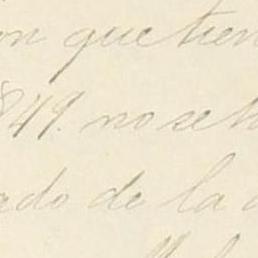 on que tien
849. no se h
ado de la